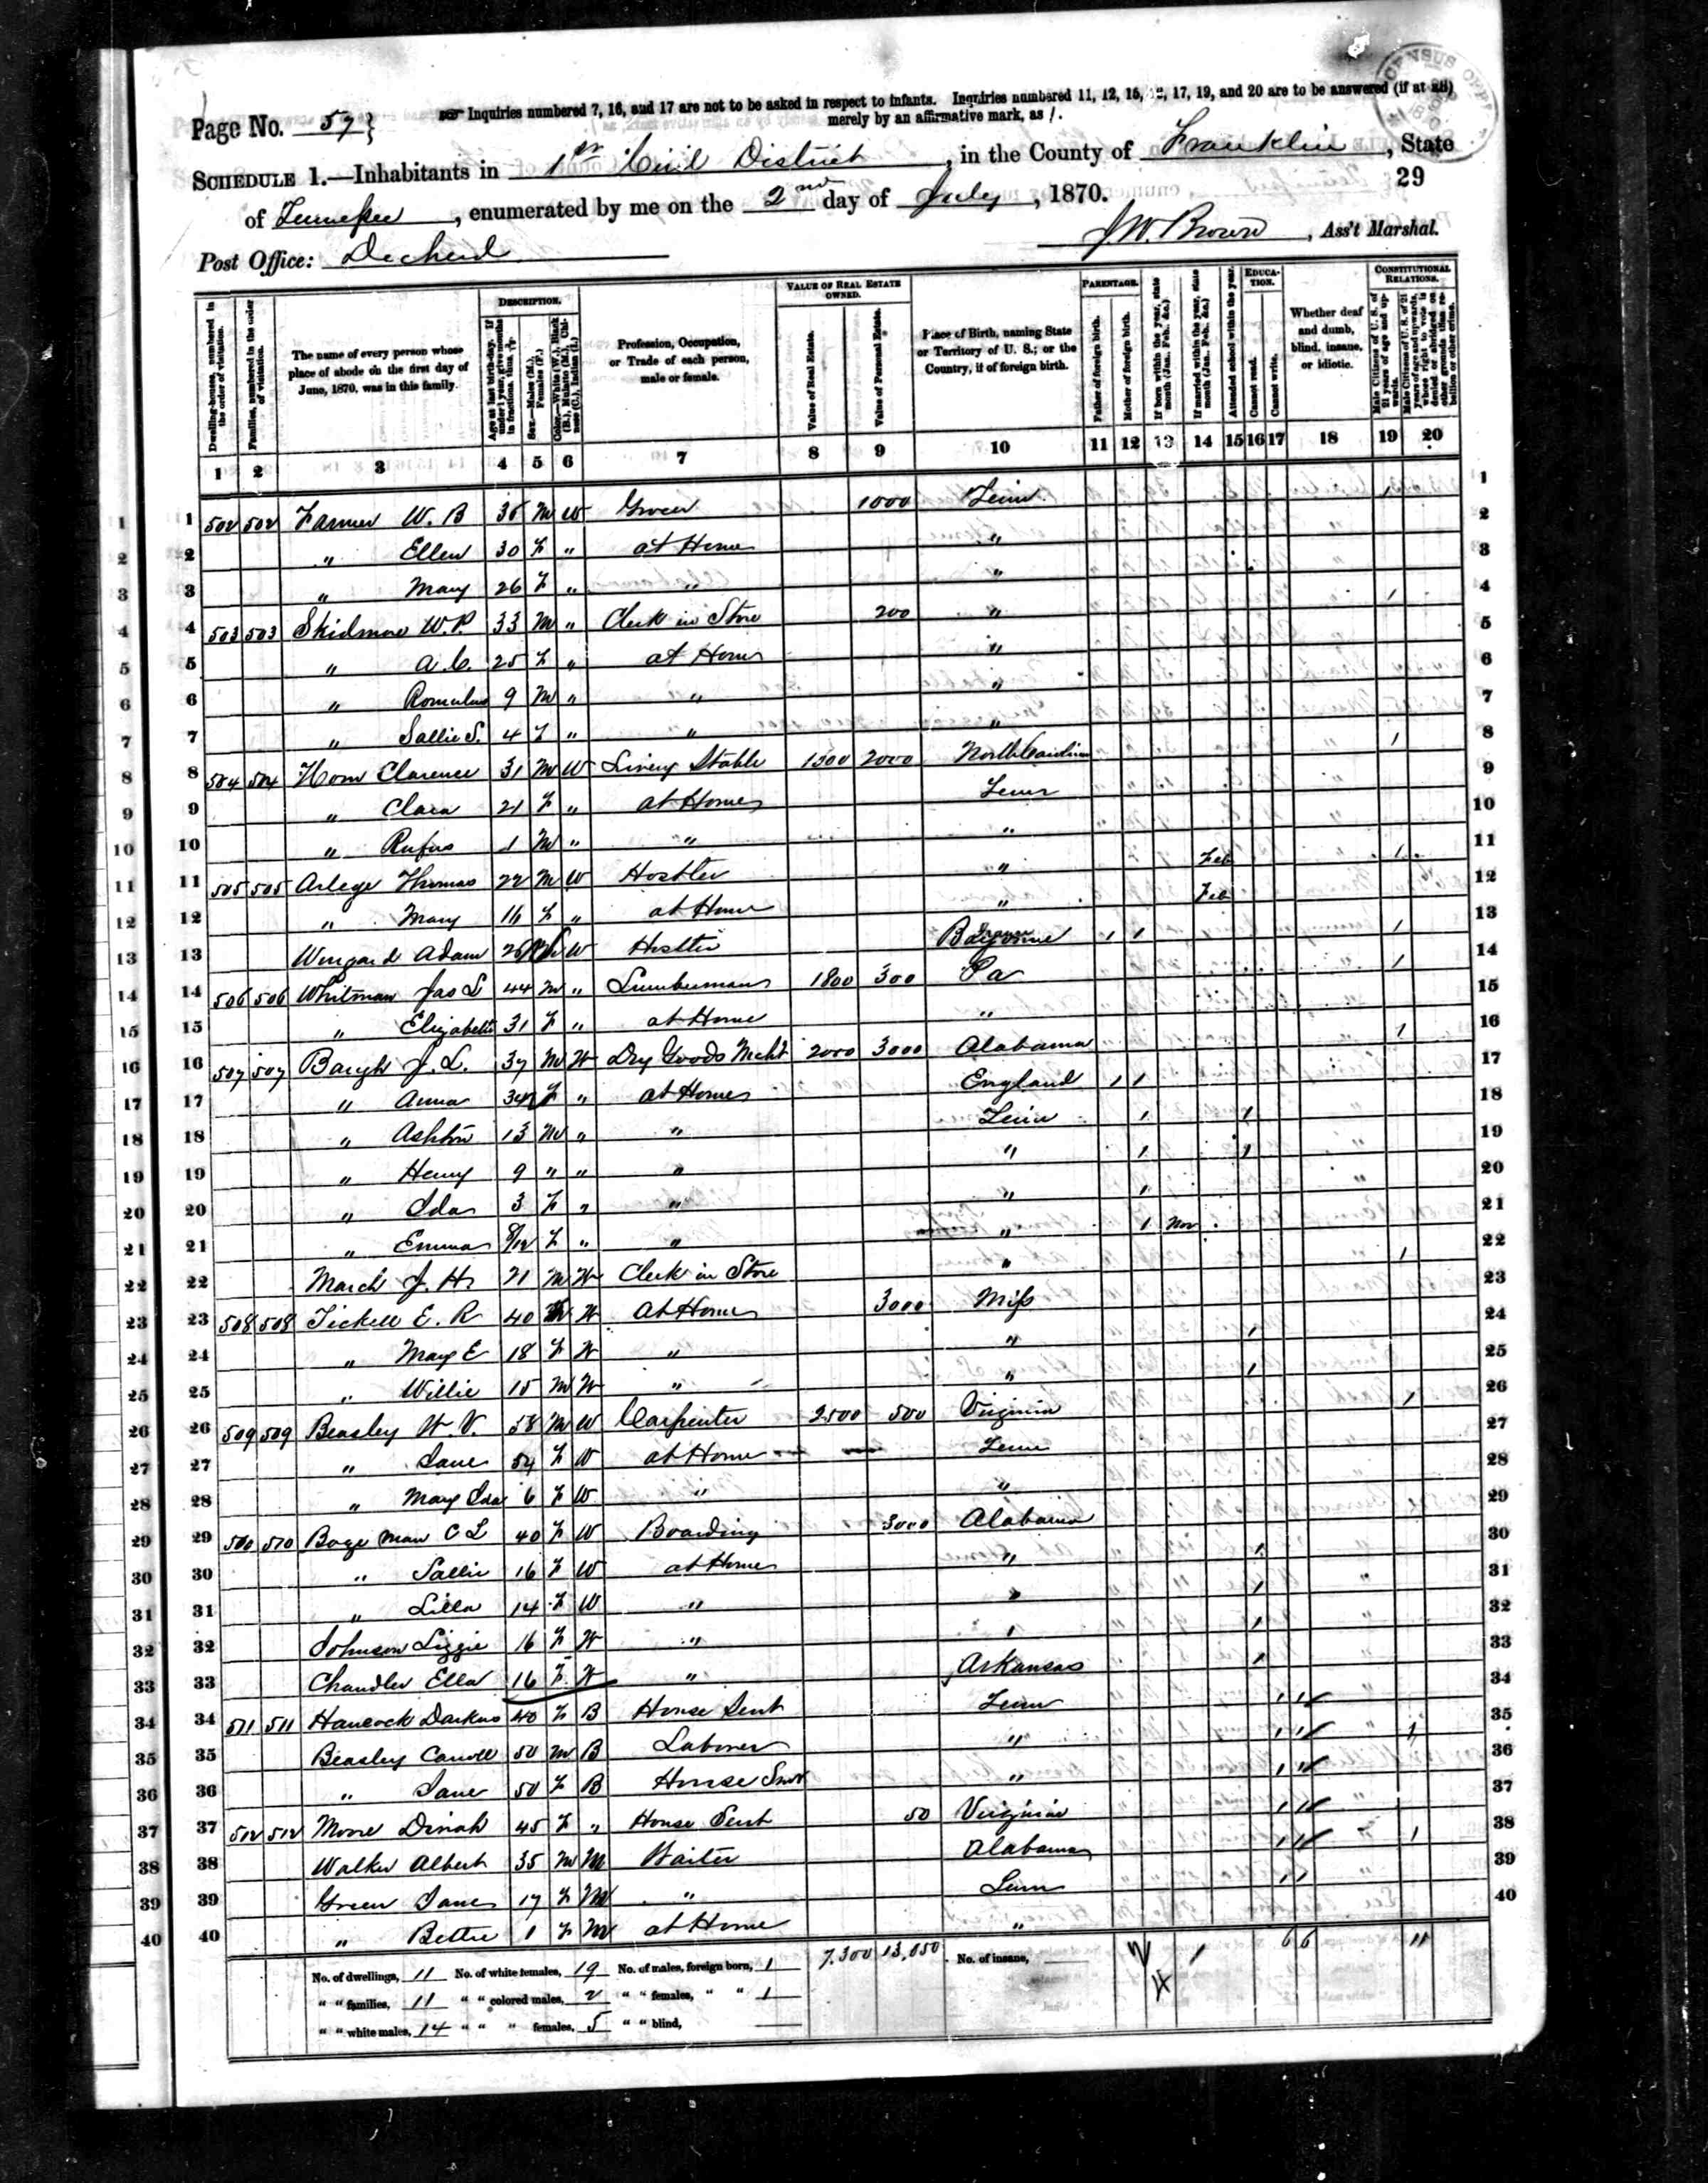 Page No. 57
Inquiries numbered 7, 16, and 17 are not to be asked in respect to infants. Inquiries numbered 11, 12, 15, 16, 17, 19, and 20 are to be answered (if at all)
merely by an affirmative mark, as /.
SCHEDULE 1.—Inhabitants in 1st Civil District, in the County of Franklin, State
29
of Tennessee, enumerated by me on the 2nd day of July, 1870.
Post Office: Decherd
J W. Brown, Ass't Marshal.
Dwelling-houses, numbered in the order of visitation.
Families, numbered in the order of visitation.
The name of every person whose place of abode on the first day of June, 1870, was in this family.
DESCRIPTION.
Age at last birth-day. If under 1 year, give months in fractions, thus, 3/12
Sex.—Males (M.), Females (F.)
Color.—White (W.), Black (B.), Mulatto (M.), Chinese (C.), Indian (I.)
Profession, Occupation, or Trade of each person, male or female.
VALUE OF REAL ESTATE OWNED.
Value of Real Estate.
Value of Personal Estate.
Place of Birth, naming State or Territory of U. S.; or the Country, if of foreign birth.
PARENTAGE.
Father of foreign birth.
Mother of foreign birth.
If born within the year, state month (Jan. Feb. &c.)
If married within the year, state month (Jan. Feb. &c.)
Attended school within the year.
EDUCATION.
Cannot read.
Cannot write.
Whether deaf and dumb, blind, insane, or idiotic.
CONSTITUTIONAL RELATIONS.
Male Citizens of U. S. of 21 years of age and upwards.
Male Citizens of U. S. of 21 years of age and upwards, whose right to vote is denied or abridged on other grounds than rebellion or other crime.
1 2 3 4 5 6 7 8 9 10 11 12 13 14 15 16 17 18 19 20
1 502 502 Farmer W. B 36 M W Grocer 1000 Tenn. 1
2 " Ellen 30 F " at Home "
3 " Mary 26 F " " "
4 503 503 Skidmore W. P. 33 M " Clerk in Store 200 " 1
5 " A. C. 25 F " at Home "
6 " Romulus 9 M " " "
7 " Sallie S. 4 F " " "
8 504 504 Horn Clarence 31 M W Livery Stable 1300 2000 North Carolina 1
9 " Clara 21 F " at Home Tenn
10 " Rufus 1 M " " "
11 505 505 Arlege Thomas 22 M W Hostler " Feb 1
12 " Mary 16 F " at Home " Feb
13 Wingard Adam 26 M W Hostler Bayonne France 1 1 1
14 506 506 Whitman Jas L 44 M " Lumberman 1800 300 Pa 1
15 " Elizabeth 31 F " at Home "
16 507 507 Baugh J. L. 37 M W Dry Goods Mcht 2000 3000 Alabama 1
17 " Anna 34 F " at Home England 1 1
18 " Ashton 13 M " " Tenn 1 1
19 " Henry 9 " " " " 1 1
20 " Ida 3 F " " " 1
21 " Emma 8/12 F " " " 1 Nov
22 March J. H. 21 M W Clerk in Store " 1
23 508 508 Tickell E. R 40 W At Home 3000 Miss
24 " Mary E 18 F W " " 1
25 " Willie 15 M W " " 1
26 509 509 Beasley W. V. 58 M W Carpenter 2500 500 Virginia 1
27 " Jane 54 F W at Home Tenn
28 " Mary Ida 6 F W " "
29 510 510 Boge man C L 40 F W Boarding 3000 Alabama
30 " Sallie 16 F W at Home " 1
31 " Lilla 14 F W " " 1
32 Johnson Lizzie 16 F W " " 1
33 Chandler Ella 16 F W " Arkansas 1
34 511 511 Hancock Darkus 40 F B House Servt Tenn 1 1
35 Beasley Carroll 50 M B Laborer " 1 1 1
36 " Jane 50 F B House Servt " 1 1
37 512 512 Moore Dinah 45 F " House Servt 50 Virginia 1 1
38 Walker Albert 35 M M Waiter Alabama 1 1 1
39 Green Jane 17 F M " Tenn 1 1
40 " Bettie 1 F M at Home "
No. of dwellings, 11 No. of white females, 19 No. of males, foreign born, 1 7,300 13,050 No. of insane, 6 6 11
" " families, 11 " " colored males, 2 " " females, " " 1
" " white males, 14 " " " females, 5 " " blind,